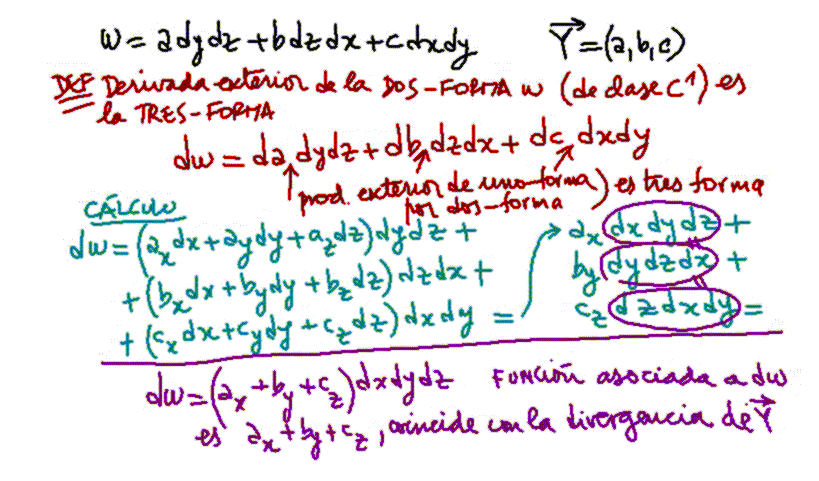 w = a dydz + b dz dx + c dx dy    Y⃗ = (a, b, c)
DEF Derivada exterior de la DOS-FORMA w (de clase C¹) es
la TRES-FORMA
dw = da dydz + db dzdx + dc dxdy
prod. exterior de uno-forma) es tres forma
por dos-forma
CÁLCULO
dw = (a_x dx + a_y dy + a_z dz) dy dz +
+ (b_x dx + b_y dy + b_z dz) dz dx +
+ (c_x dx + c_y dy + c_z dz) dx dy =
a_x dx dy dz +
b_y dy dz dx +
c_z dz dx dy =
dw = (a_x + b_y + c_z) dx dy dz    FUNCIÓN asociada a dw
es a_x + b_y + c_z, coincide con la divergencia de Y⃗